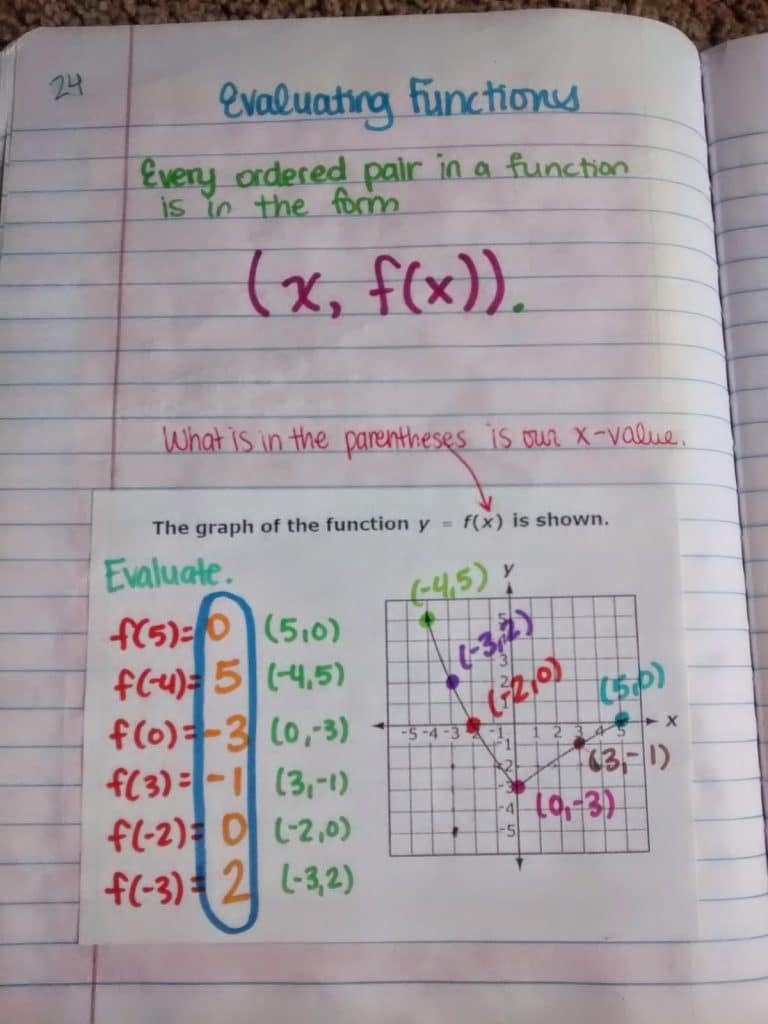 24
Evaluating Functions
Every ordered pair in a function
is in the form
(x, f(x)).
What is in the parentheses is our x-value.
The graph of the function y = f(x) is shown.
Evaluate.
f(5)= 0 (5,0)
f(-4)= 5 (-4,5)
f(0)= -3 (0,-3)
f(3)= -1 (3,-1)
f(-2)= 0 (-2,0)
f(-3)= 2 (-3,2)
y
(-4,5)
(-3,2)
(-2,0)
(5,0)
x
-5 -4 -3 -1 1 2 3 4 5
5
3
2
-1
-2
-3
-4
-5
(3,-1)
(0,-3)